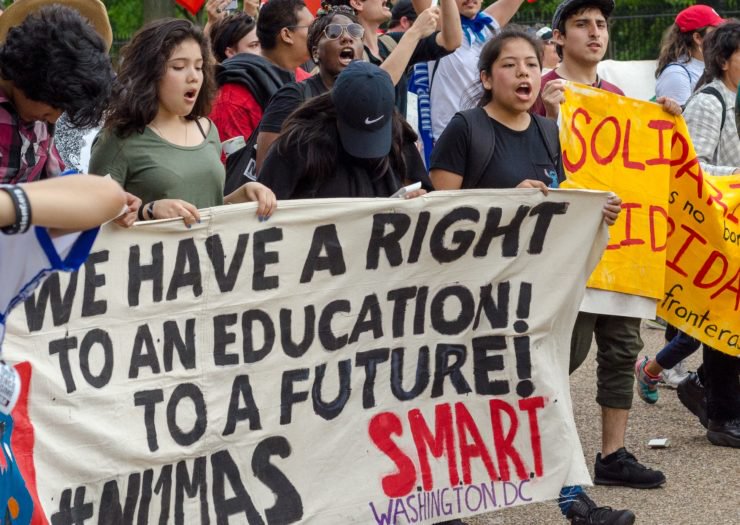 WE HAVE A RIGHT
TO AN EDUCATION!
TO A FUTURE!
#NI1MAS
S.M.A.R.T
WASHINGTON.DC
SOLIDARI
s no bor
IDARIDA
fronteras